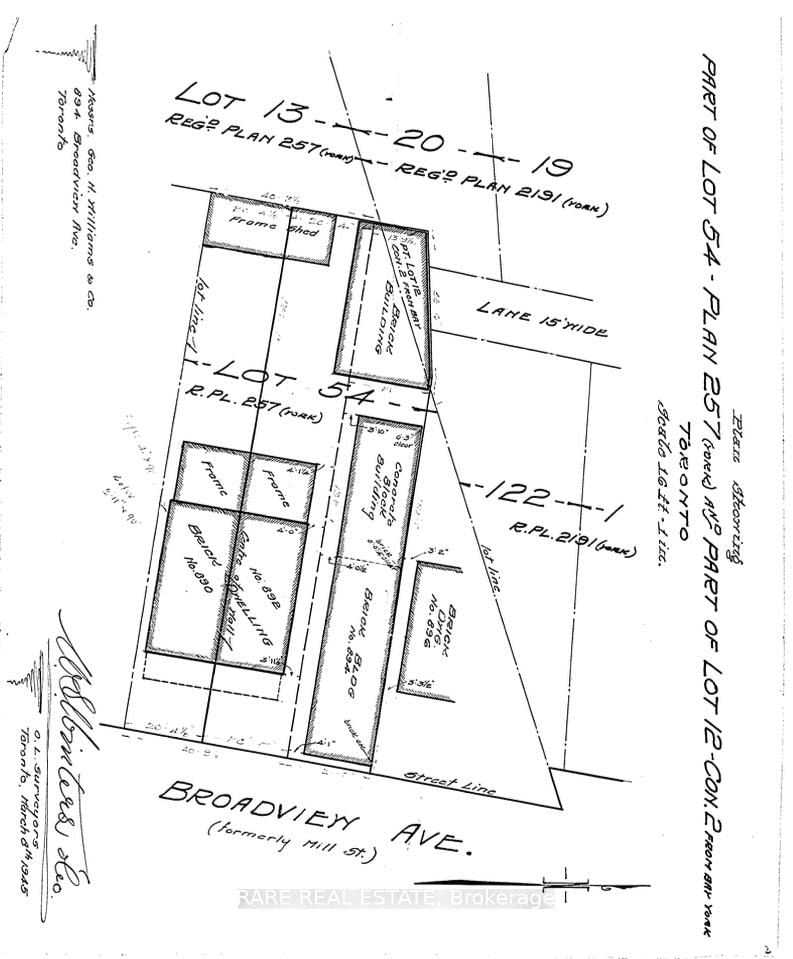 Plan Showing
PART OF LOT 54 - PLAN 257 (YORK) AND PART OF LOT 12 - CON. 2 FROM BAY YORK
TORONTO
Scale 16 ft. - 1 in.
Messrs. Geo. H. Williams & Co.
894 Broadview Ave.
Toronto
LOT 13 - 20 - 19
REG'D PLAN 257 (YORK) - REG'D PLAN 2191 (YORK)
Frame Shed
PT. LOT 12
CON. 2 FROM BAY
BRICK
BUILDING
LANE 15' WIDE
lot line
LOT 54
R.PL. 257 (YORK)
3'-10"
0'-3"
clear
Concrete
Block
Building
122 - 1
R.PL. 2191 (YORK)
lot line
Frame
Frame
4'-1¼
4'-0"
BRICK
No. 890
No. 892
DWELLING
4'-0½
3'-2"
BRICK BLDG
No. 894
BRICK
DWG
No. 896
3'-3½
3'-11½
Street Line
BROADVIEW AVE.
(formerly Mill St.)
O.L. Surveyors
Toronto, March 8th 1945
RARE REAL ESTATE, Brokerage
2